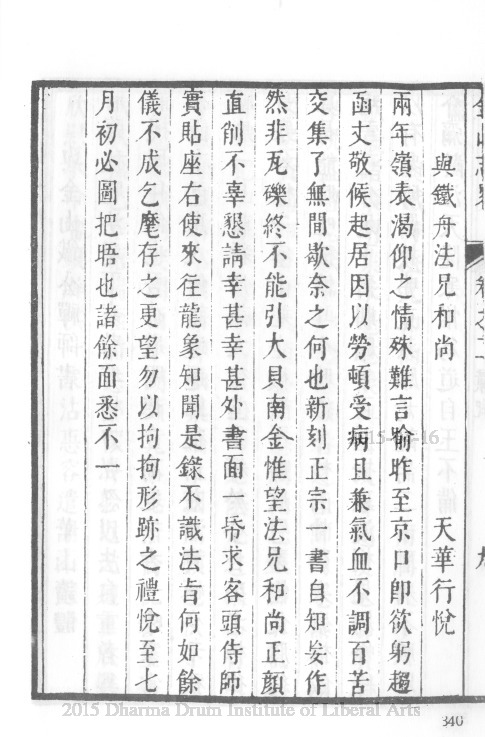 與鐵舟法兄和尚　天華行悅
兩年嶺表渴仰之情殊難言喻昨至京口即欲躬趨
函丈敬候起居因以勞頓受病且兼氣血不調百苦
交集了無間歇奈之何也新刻正宗書自知妄作
然非瓦礫終不能引大貝南金惟望法兄和尚正顏
直削不辜懇請幸甚幸甚外書面一帋求客頭侍師
實貼座右使來往龍象知聞是錄不識法旨何如餘
儀不成乞麾存之更望勿以拘拘形跡之禮悅至七
月初必圖把晤也諸餘面悉不一
2015 Dharma Drum Institute of Liberal Arts
340